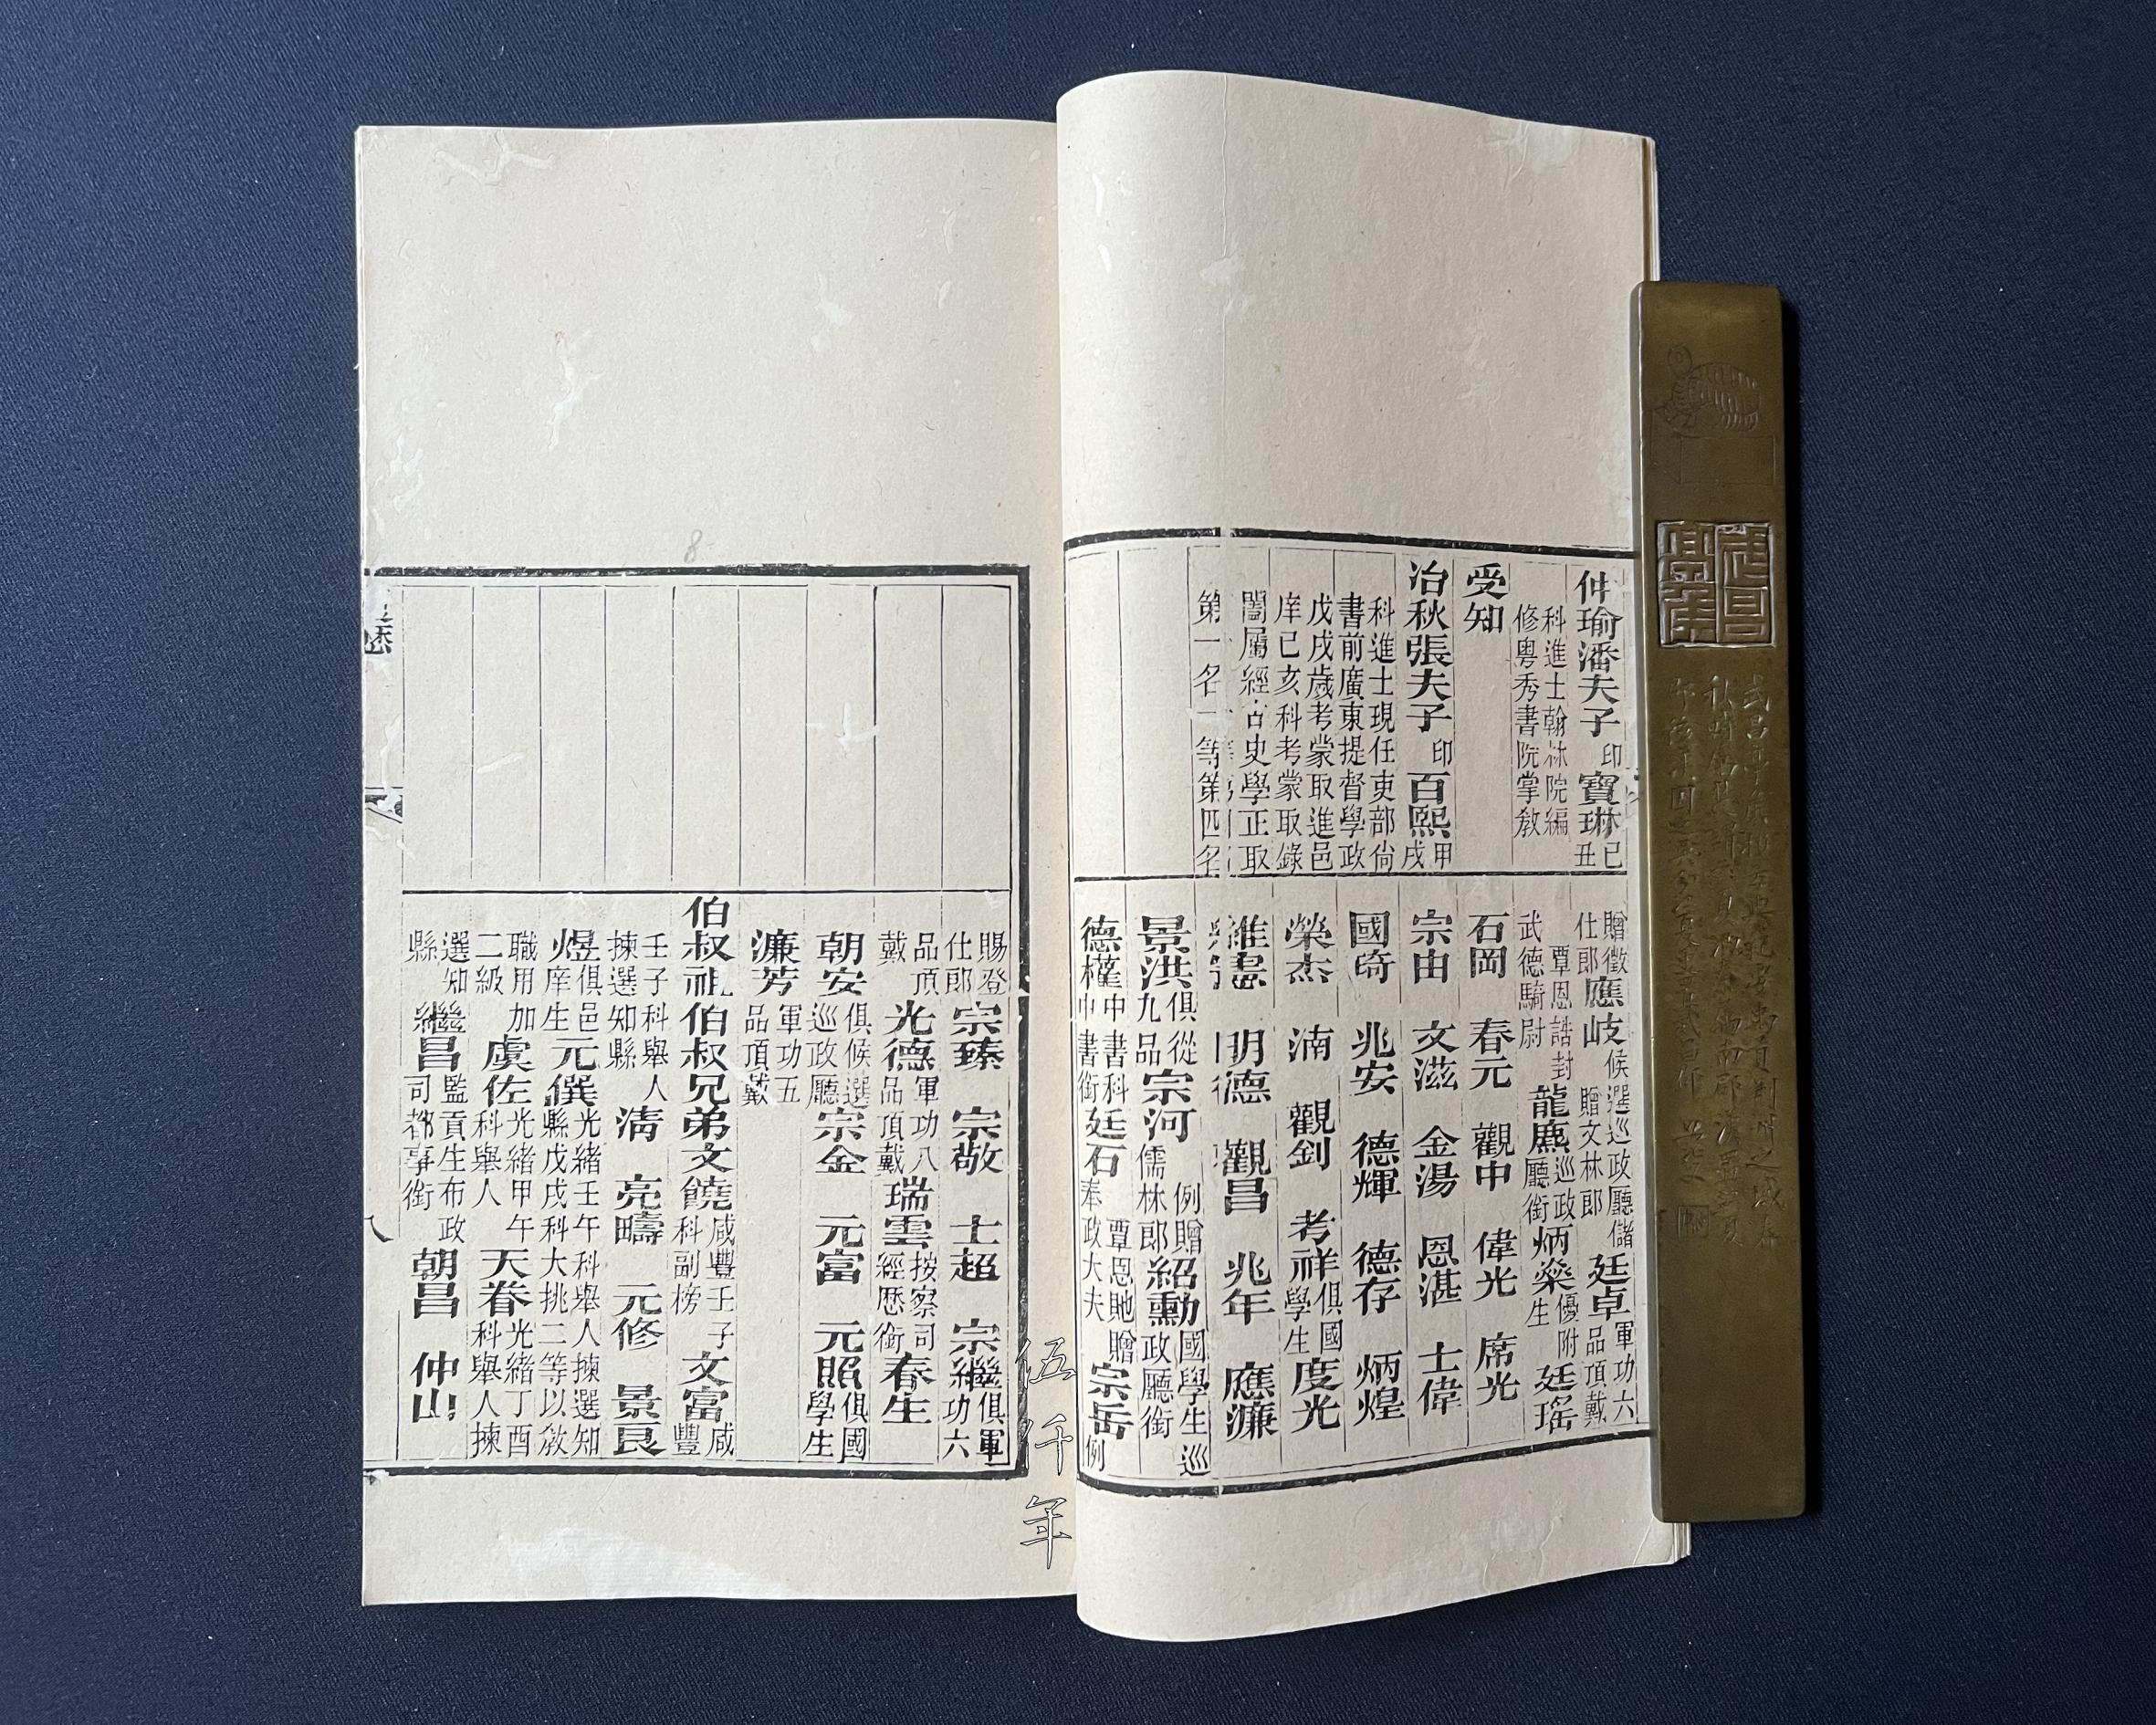 仲瑜潘夫子印寶琳己丑
科進士翰林院編
修粵秀書院掌教
受知
冶秋張夫子印百熙甲戌
科進士現任吏部尙
書前廣東提督學政
戊戌歲考蒙取進邑
庠己亥科考蒙取錄
闔屬經古史學正取
第一名一等第四名
贈徵仕郎應岐候選巡政廳贈文林郎儲廷卓軍功六品頂戴
覃恩誥封武德騎尉龍麃巡政廳銜炳燊優附生廷瑤
石岡 春元 觀中 偉光 席光
宗由 文滋 金湯 恩湛 士偉
國奇 兆安 德輝 德存 炳煌
榮杰 湳 觀釗 考祥俱國學生度光
明德 觀昌 兆年 應濂
景洪俱從九品宗河例贈儒林郎紹勳國學生巡政廳銜
德權中書科中書銜廷石覃恩貤贈奉政大夫宗岳例
賜登仕郎宗臻 宗敬 士超 宗繼俱軍功六
品頂戴光德軍功八品頂戴瑞雲按察司經歷銜春生
朝安俱候選巡政廳宗金 元富 元照俱國學生
濂芳軍功五品頂戴
伯叔祖伯叔兄弟文饒咸豐壬子科副榜文富咸豐
壬子科舉人揀選知縣清 亮疇 元修 景良
煜俱邑庠生元僎光緒壬午科舉人揀選知縣戊戌科大挑二等以敎
職用加二級虞佐光緒甲午科舉人天眷光緒丁酉科舉人揀
選知縣繼昌監貢生布政司都事銜朝昌 仲山
八
8
伍仟年